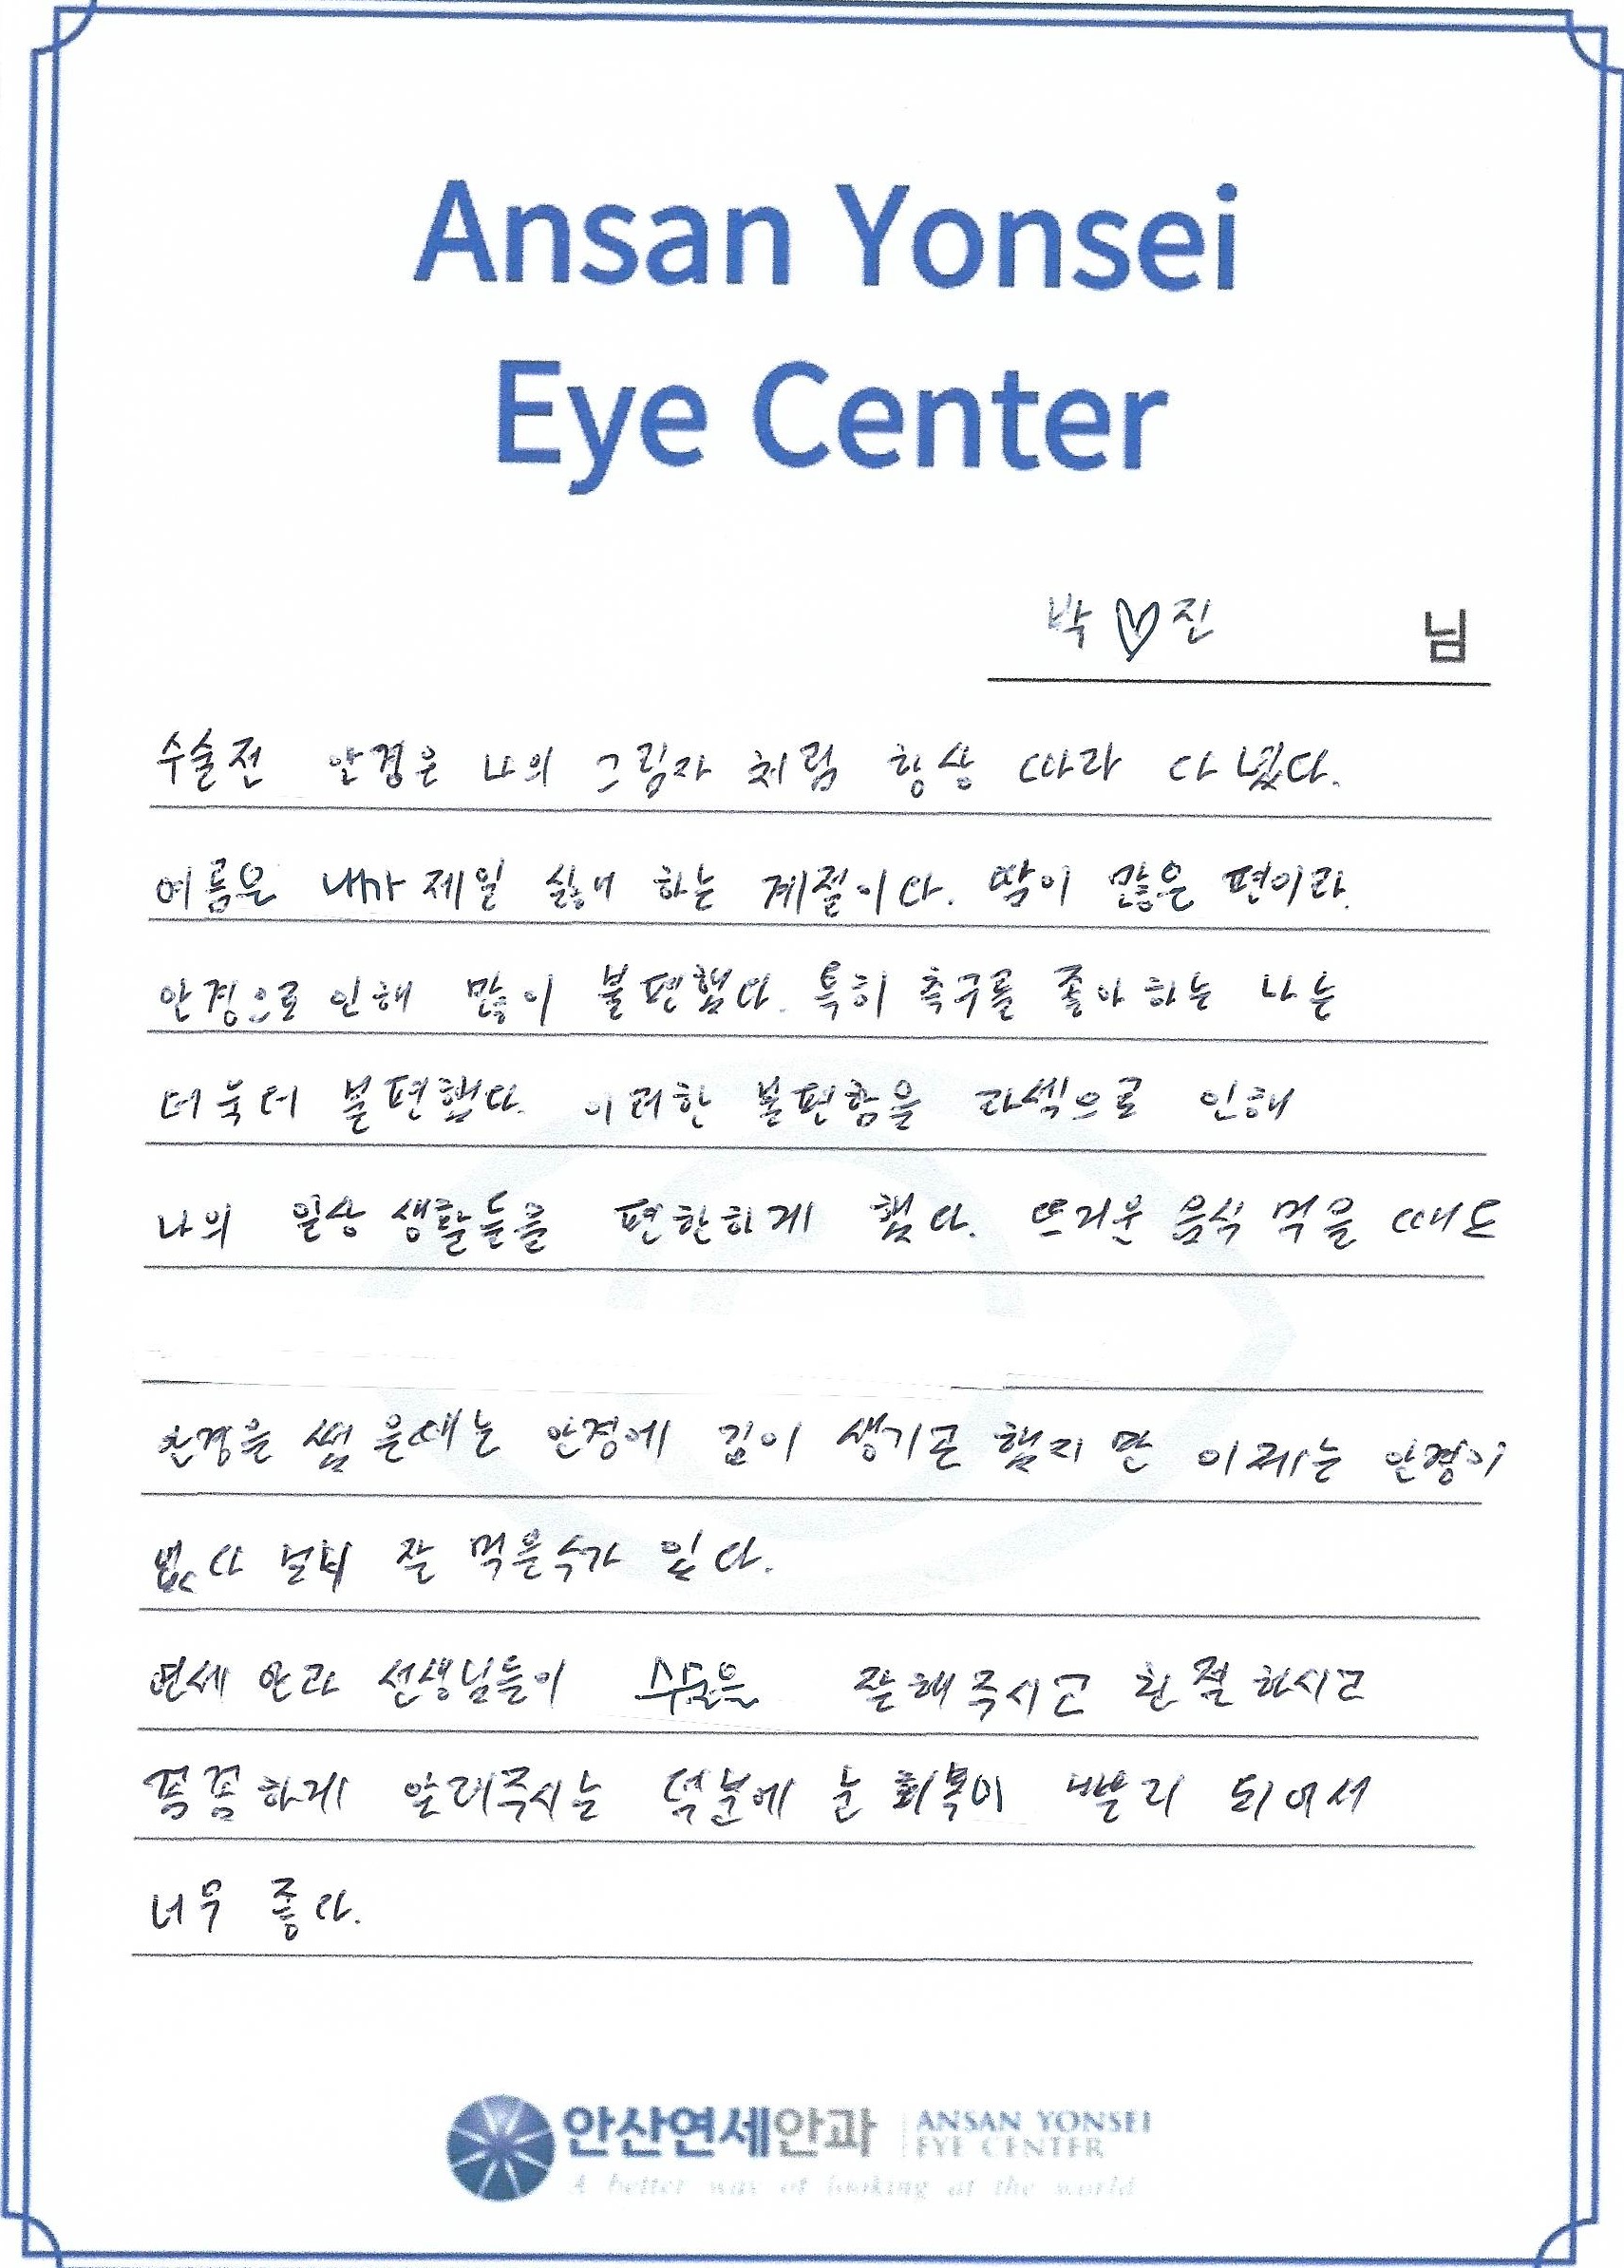 Ansan Yonsei
Eye Center
박♡진 님
수술전 안경은 나의 그림자 처럼 항상 따라 다녔다.
여름은 내가 제일 싫어 하는 계절이다. 땀이 많은 편이라
안경으로 인해 많이 불편했다. 특히 축구를 좋아하는 나는
더욱더 불편했다. 이러한 불편함을 라섹으로 인해
나의 일상 생활들을 편한하게 했다. 뜨거운 음식 먹을 때도
안경을 썼을때는 안경에 김이 생기곤 했지만 이제는 안경이
없다 보니 잘 먹을수가 있다.
연세 안과 선생님들이 수술을 잘해주시고 친절하시고
꼼꼼하게 알려주시는 덕분에 눈 회복이 빨리 되어서
너무 좋다.
안산연세안과 ANSAN YONSEI
EYE CENTER
A better way of looking at the world